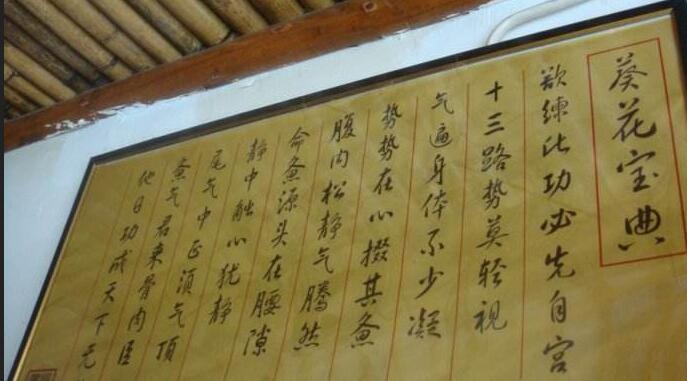 葵花宝典
欲練此功必先自宫
十三路势莫轻视
气遍身体不少凝
势势在心掇其意
腹内松静气腾然
命意源头在腰隙
静中触心犹静
尾气中正须气顶
意气君来骨肉臣
他日功成天下无